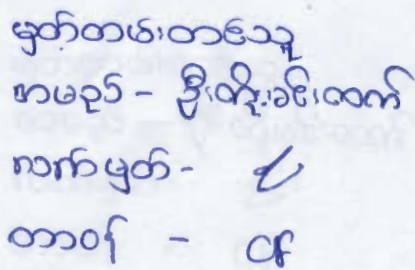 မှတ်တမ်းတင်သူ
အမည် - ဦးတိုးခင်လတ်
လက်မှတ် -
တာဝန် - CF